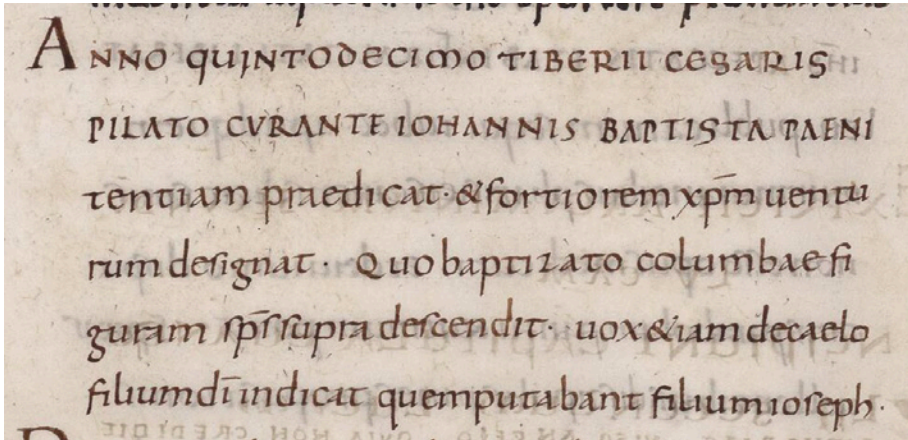 ANNO QUINTODECIMO TIBERII CESARIS
PILATO CVRANTE IOHANNIS BAPTISTA PAENI
tentiam praedicat· &fortiorem xp̄m uentu
rum designat· Quo baptizato columbae fi
guram sp̄s supra descendit· uox &iam decaelo
filium dī indicat quem putabant filium ioseph·